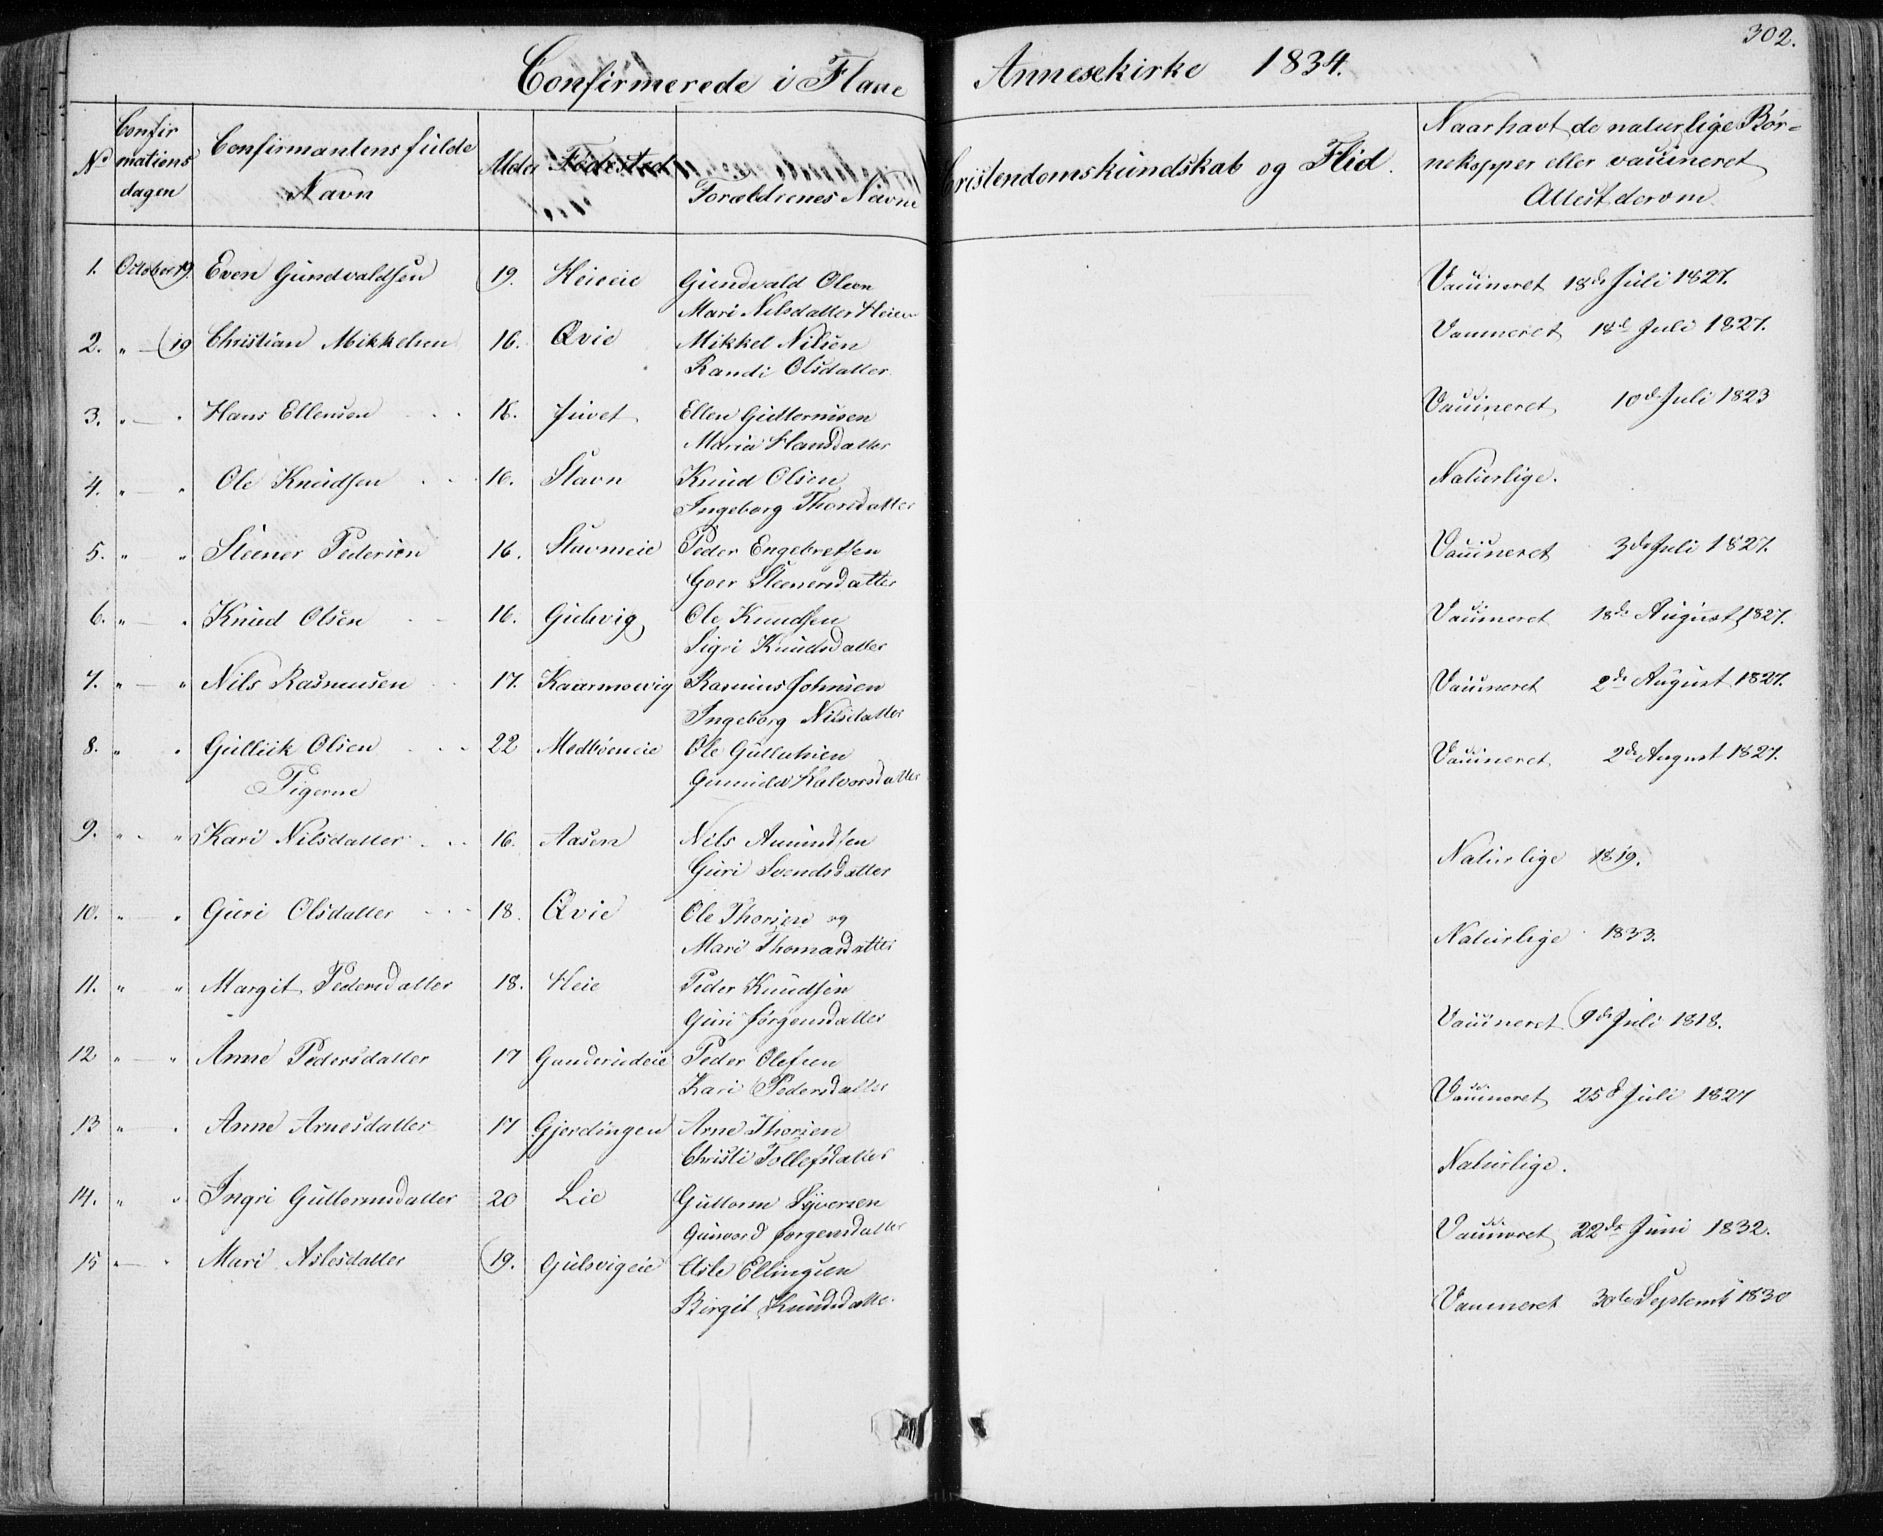 302.
Confirmerede i Flaae Annexekirke 1834.
No Confirmations dagen Confirmantens fulde Navn Alder Fødested Forældrenes Navne Cristendomskundskab og Flid. Naar havt de naturlige Børnekopper eller vaccineret Attest derom.
1. October 19. Even Gundvaldsen 19. Heieeie Gundvald Olsen Vaccineret 18de Juli 1827.
Mari Nilsdatter Heien
2. " — 19 Christian Mikkelsen 16. Qvie Mikkel Nilsen Vaccineret 18d Juli 1827.
Randi Olsdatter
3. " — " Hans Ellensen 18. Juvet Ellen Guttormsen Vaccineret 10de Juli 1823
Maria Hansdatter
4. " — " Ole Knudsen 16. Stavn Knud Olsen Naturlige.
Ingeborg Thorsdatter
5. " " Steener Pedersen 16. Stavneeie Peder Engebretsen Vaccineret 3de Juli 1827.
Goer Steenersdatter
6. " — " Knud Olsen 16. Gulsvig Ole Knudsen Vaccineret 18de August 1827.
Sigri Knudsdatter
7. " — " Nils Rasmusen 17. Kaarmoevig Rasmus Johnsen Vaccineret 2de August 1827.
Ingeborg Nilsdatter
8. " " Gullick Olsen 22 Medbøeneie Ole Gullichsen Vaccineret 2de August 1827.
Gunnild Halvorsdatter
Pigerne
9. " - " Kari Nilsdatter 16. Aasen Nils Amundsen Naturlige 1819.
Guri Svendsdatter
10. " — " Guri Olsdatter 18. Qvie Ole Thorsen og Naturlige 1833.
Mari Thomasdatter
11. " " Margit Pedersdatter 18. Heie Peder Knudsen Vaccineret 9de Juli 1818.
Guri Jørgensdatter
12 " — " Anne Pedersdatter 17 Ganderudeie Peder Olefsen Vaccineret 25d Juli 1827
Kari Pedersdatter
13 " — " Anne Arnesdatter 17 Gjerdingen Arne Thorsen Naturlige.
Christi Tollefsdatter
14. " " Ingri Guttormsdatter 20 Lie Guttorm Syversen Vaccineret 22de Juni 1832.
Gunvord Jørgensdatter
15 " — " Mari Aslesdatter 19. Gulsvigeie Asle Ellingsen Vaccineret 30te Septemb 1830
Birgit Knudsdatter